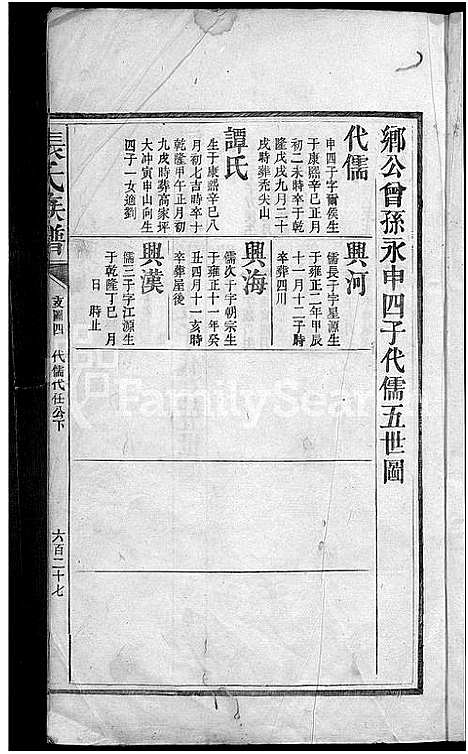 鄉公曾孫永申四子代儒五世圖
代儒
申四子字爾侯生
于康熙辛巳正月
初二未時卒于乾
隆戊戌九月二十
戌時葬禿尖山
譚氏
生于康熙辛巳八
月初七吉時卒十
乾隆甲午正月初
九戌時葬高家坪
大冲寅申山向生
四子一女適劉
興河
儒長子字星源生
于雍正二年甲辰
十一月十二子時
卒葬四川
興海
儒次子字朝宗生
于雍正十一年癸
丑四月十一亥時
卒葬屋後
興漢
儒三子字江源生
于乾隆丁巳 月
日 時止
氏族譜
支圖四 代儒代仕公下
六百二十七
FamilySearch